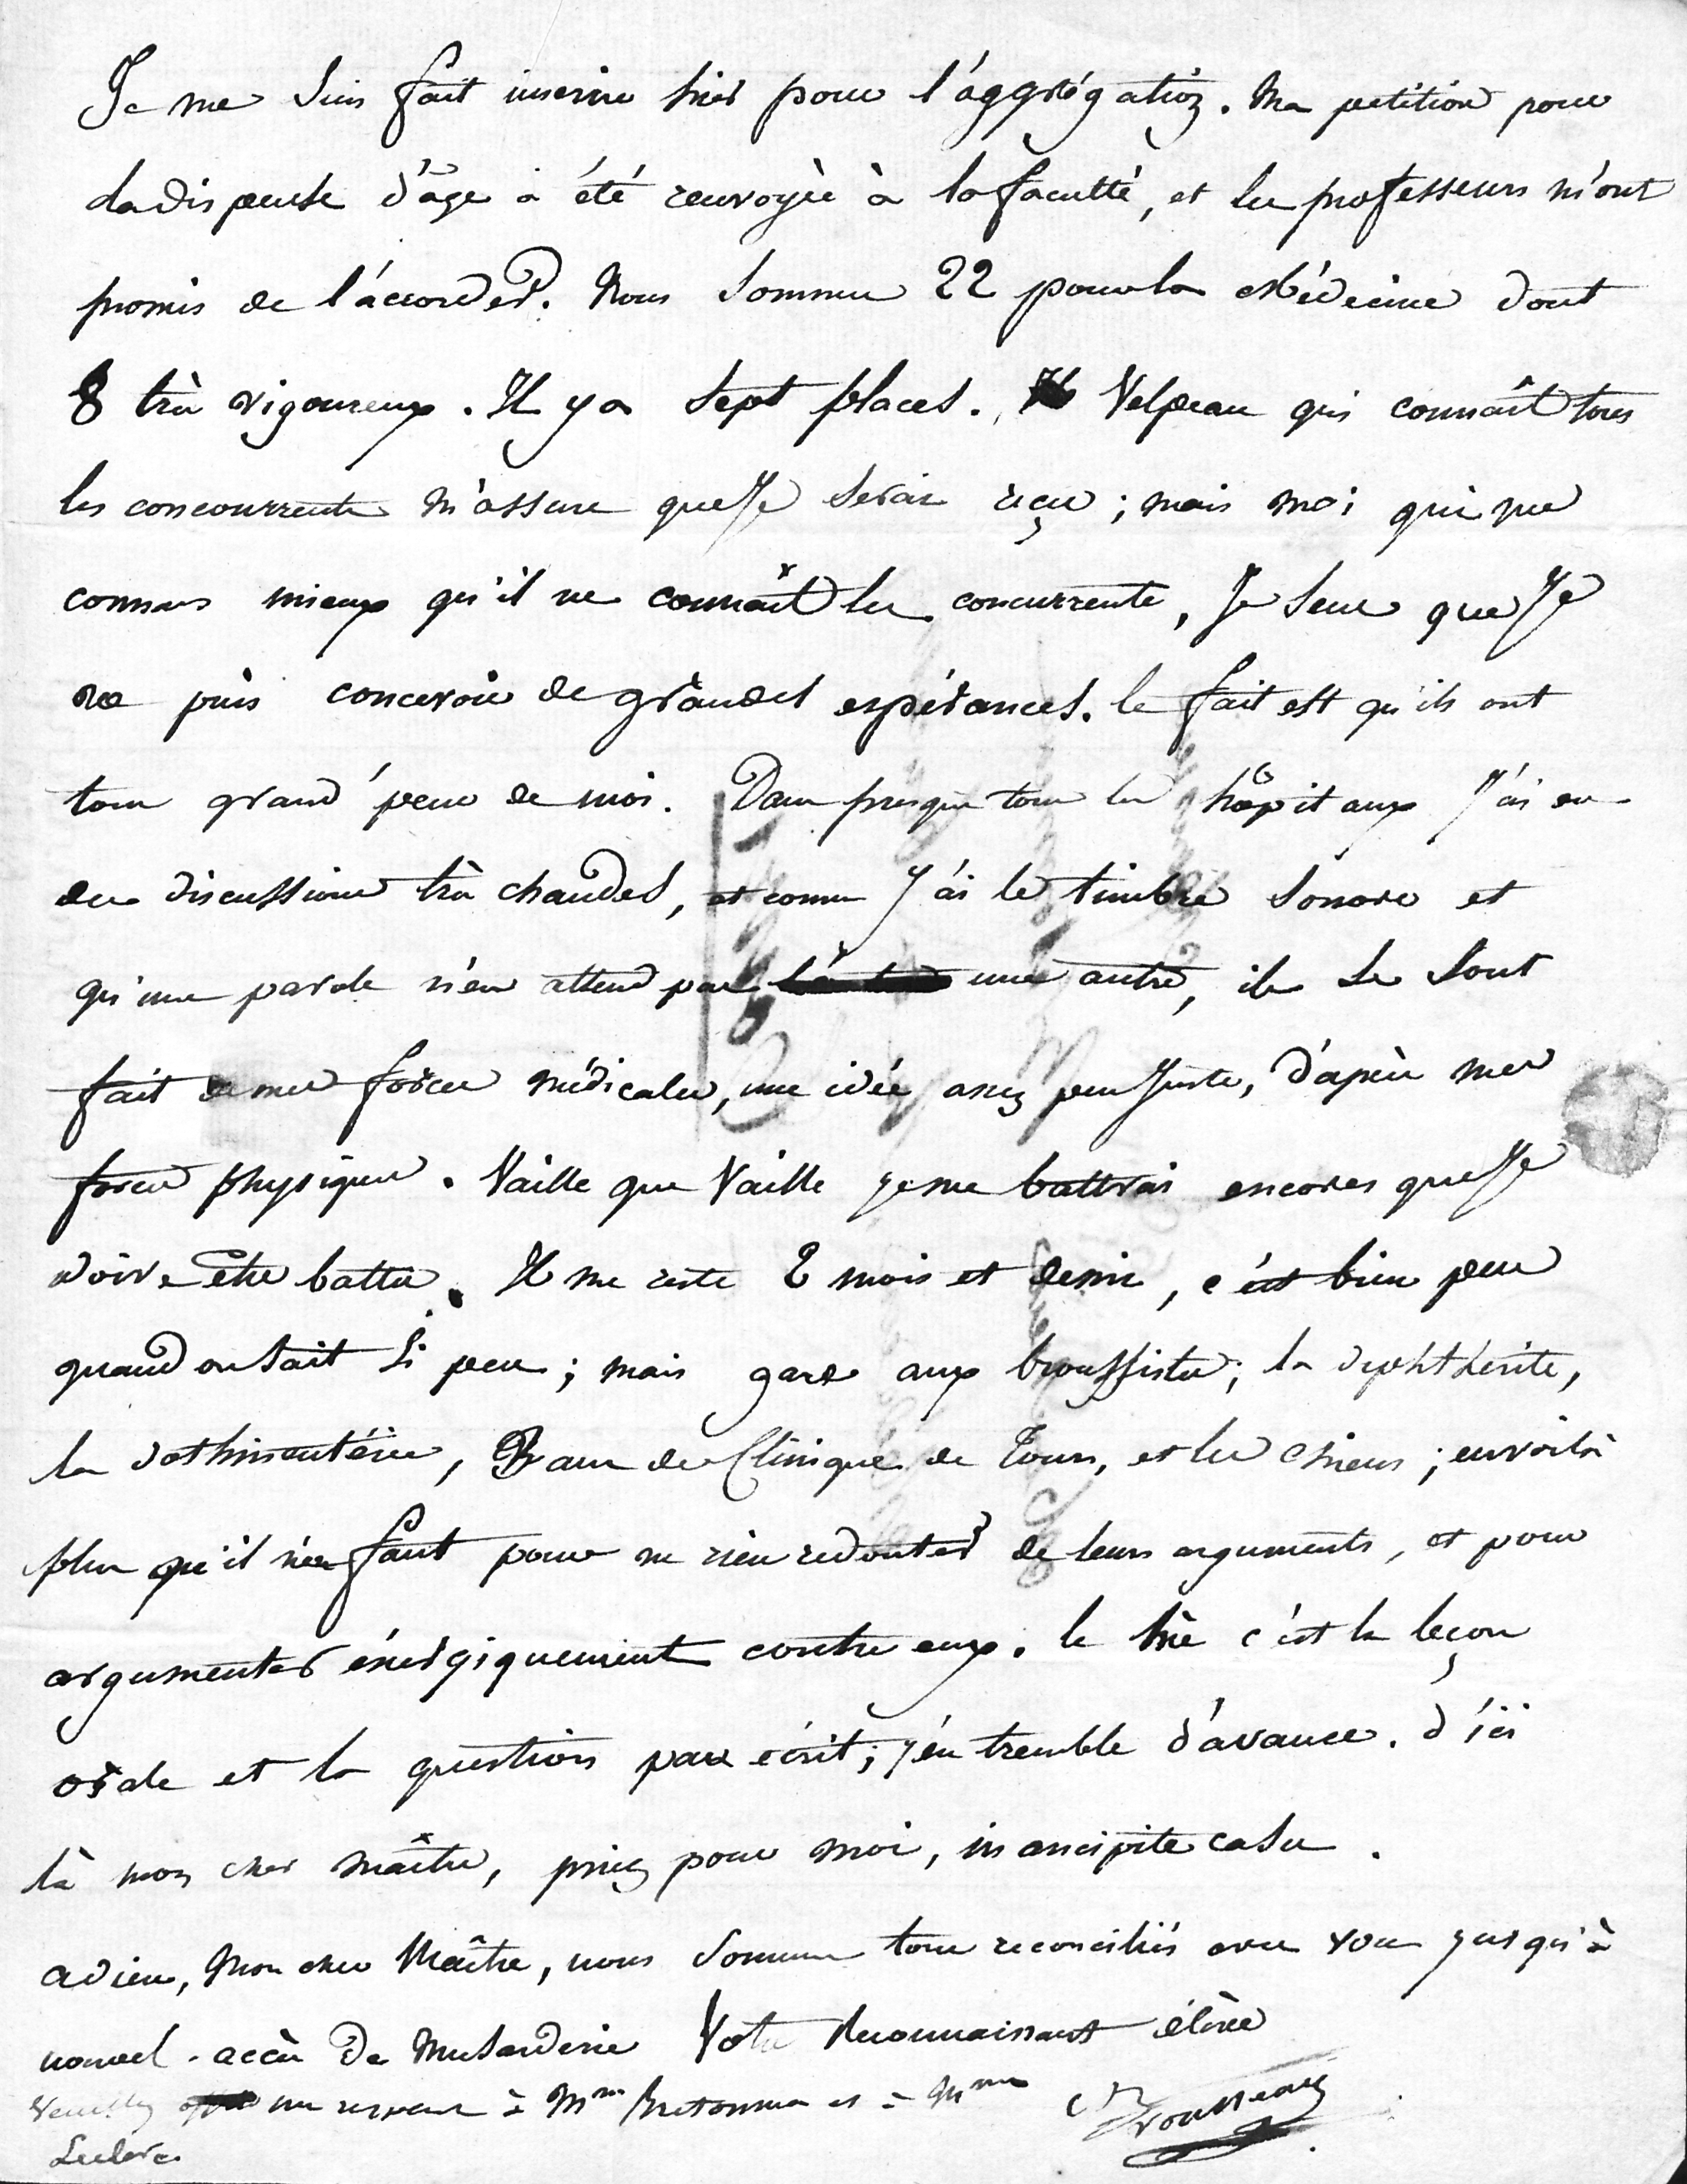 Je me suis fait inscrire hier pour l'aggrégation. Ma petition pour
la dispense d'âge a été renvoyée à la faculté, et les professeurs m'ont
promis de l'accorder. Nous sommes 22 pour la Médecine dont
8 très vigoureux. Il y a sept places. Velpeau qui connaît tous
les concourrents m'assure que je serai reçu ; mais moi qui me
connais mieux qu'il ne connaît les concurrents, je sens que je
ne puis concevoir de grandes espérances. le fait est qu'ils ont
tous grand'peur de moi. Dans presque tous les hôpitaux j'ai eu
des discussions très chaudes, et comme j'ai le timbre sonore et
qu'une parole n'en attend pas une autre, ils se sont
fait de mes forces médicales, une idée assez peu juste, d'après mes
forces physiques. Vaille que Vaille je me battrai encores que je
doive être battu. Il me reste 2 mois et demi, c'est bien peu
quand on sait si peu ; mais gare aux broussistes ; la diphthérite,
la dothinentérie, de Clinique de Tours, et les chiens ; en voilà
plus qu'il n'en faut pour ne rien redouter de leurs arguments, et pour
argumenter énergiquement contre eux. le hic c'est la leçon
orale et la question par écrit ; j'en tremble d'avance. d'ici
là mon cher maître, priez pour moi, in ancipite casu.
adieu, Mon cher Maître, nous sommes tous reconciliés avec vous jusqu'à
nouvel accès de musarderie Votre reconnaissant élève
Veuillez mes respects à Mme Bretonneau et à Mme Trousseau
Leclerc.